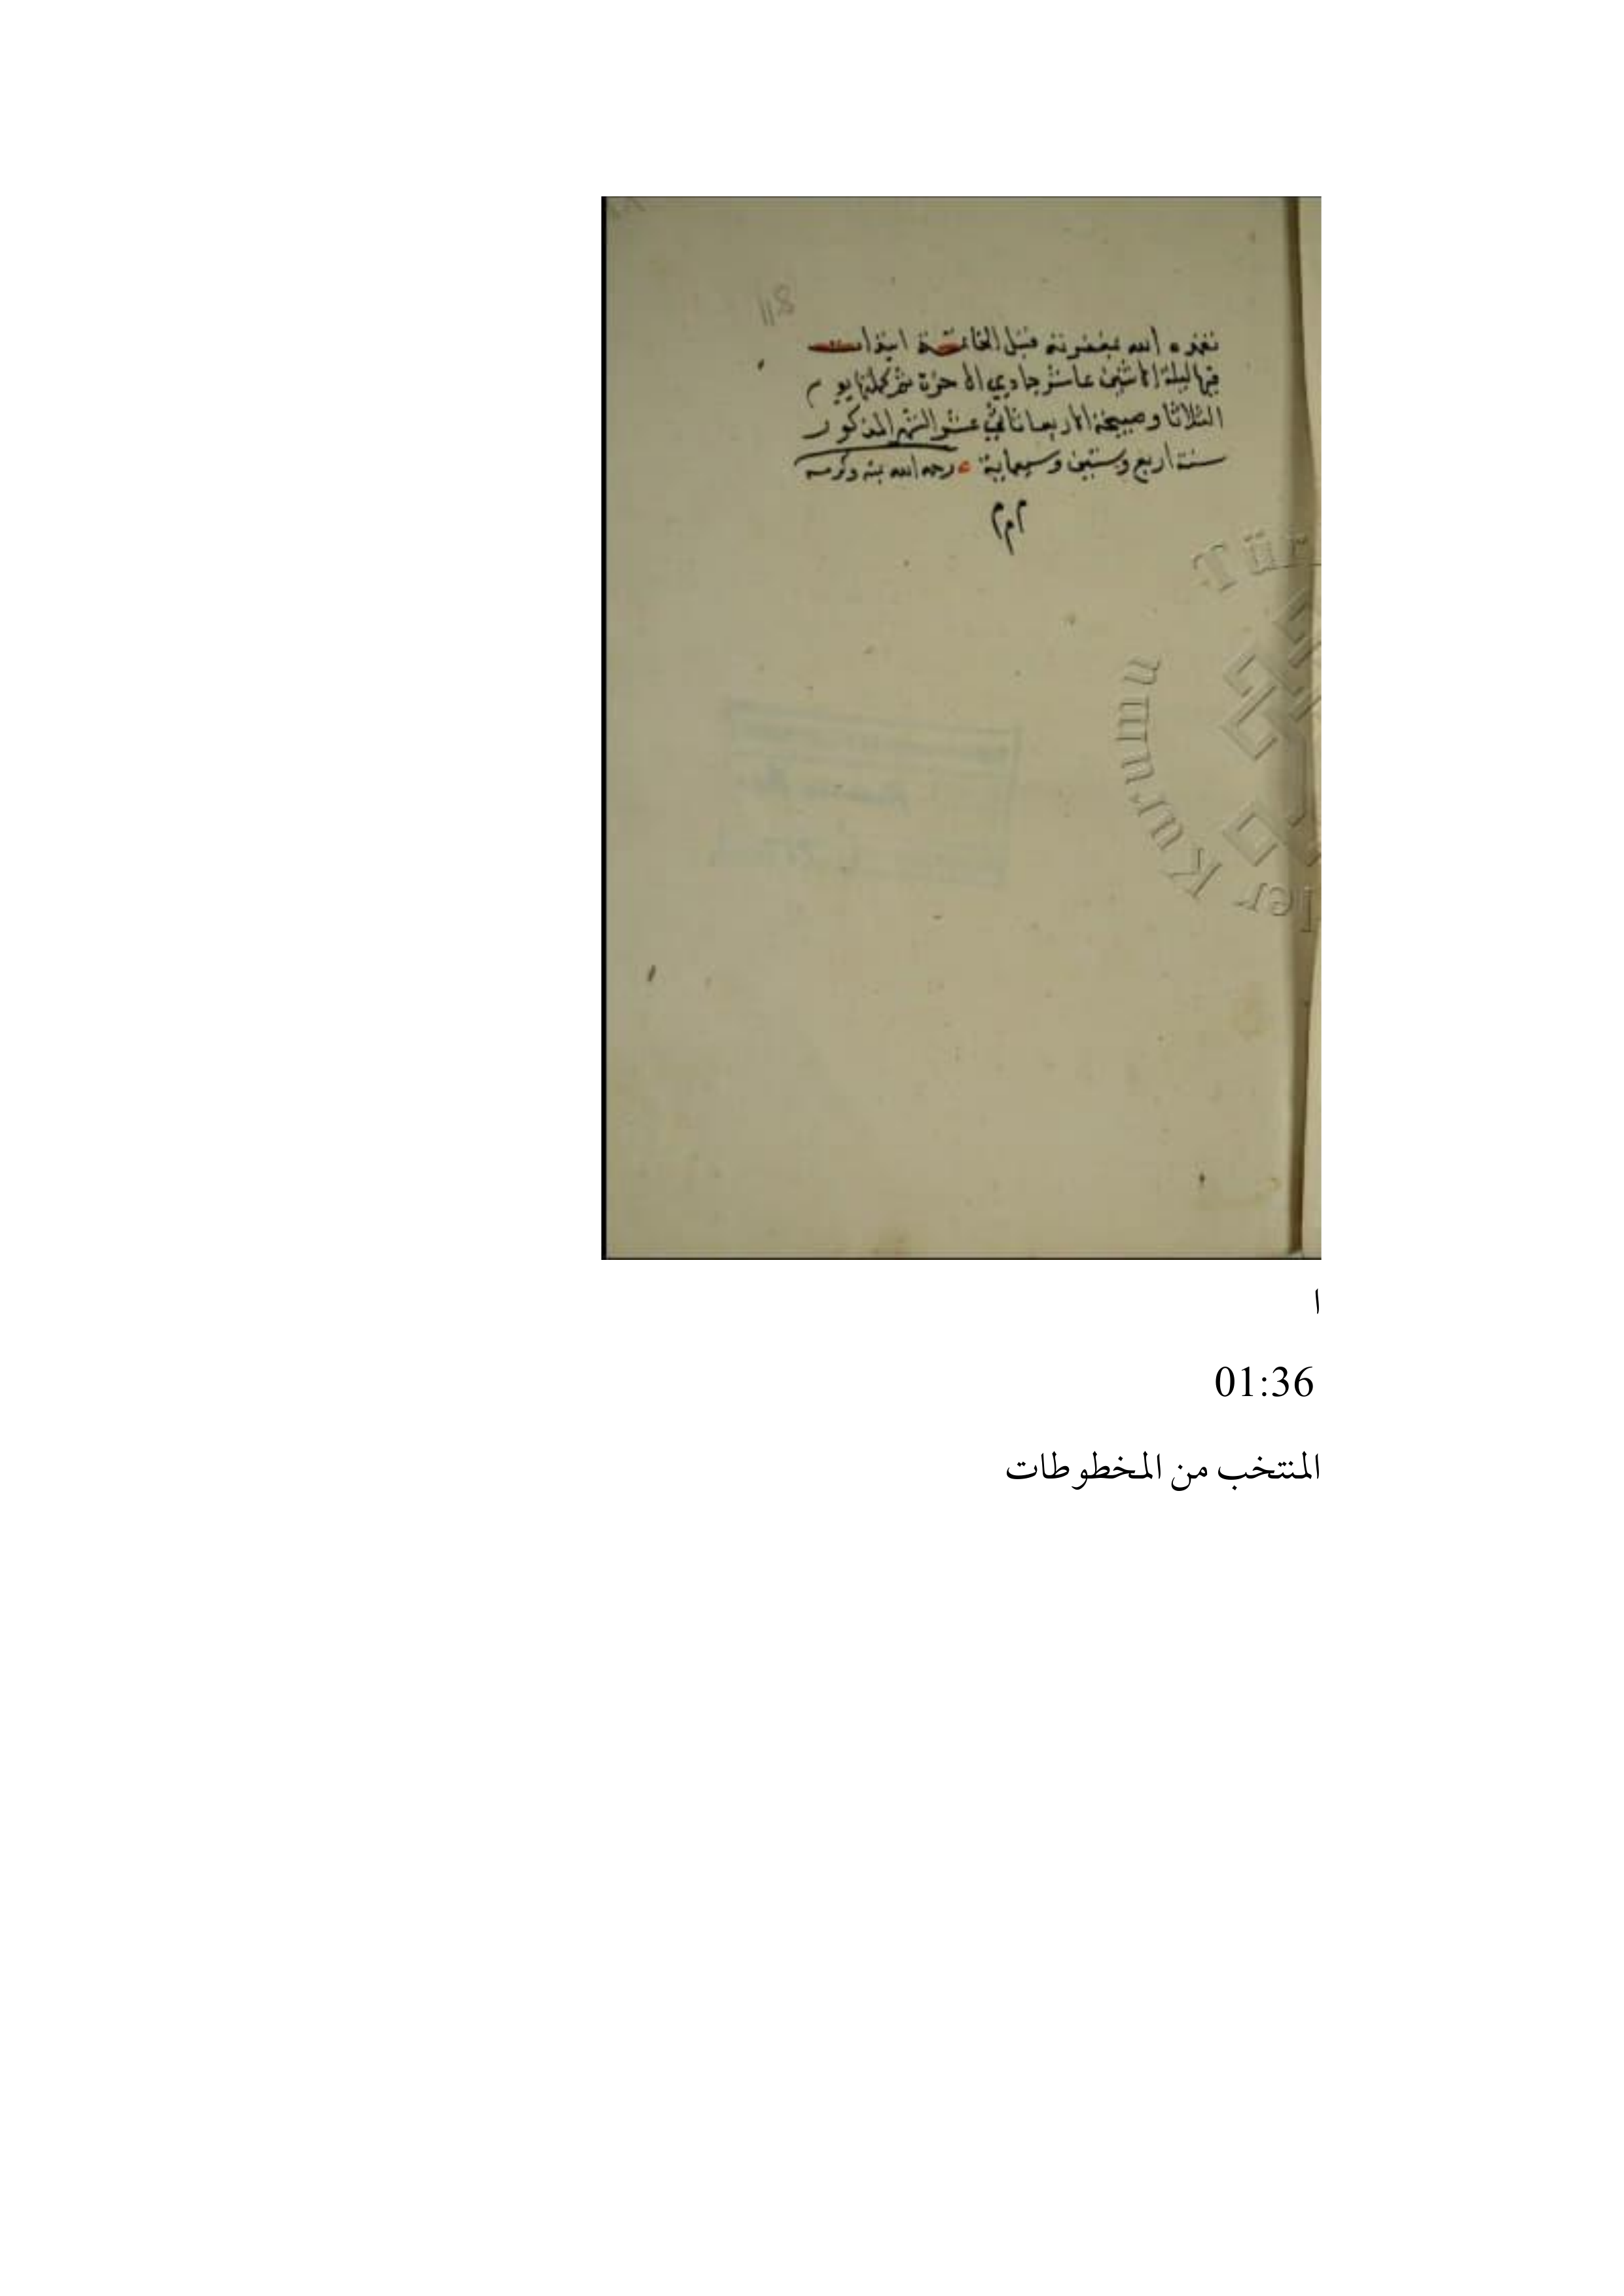 118
تغمده الله بمغفرته قبل الخاتمة ابتدات
فيها ليلة الاثنين عاشر جمادي الاخرة ثم كملتها يوم
الثلاثا وصبيحة الاربعا ثاني عشر الشهر المذكور
سنة اربع وستين وسبعماية رحمه الله بمنه وكرمه
ا
01:36
المنتخب من المخطوطات